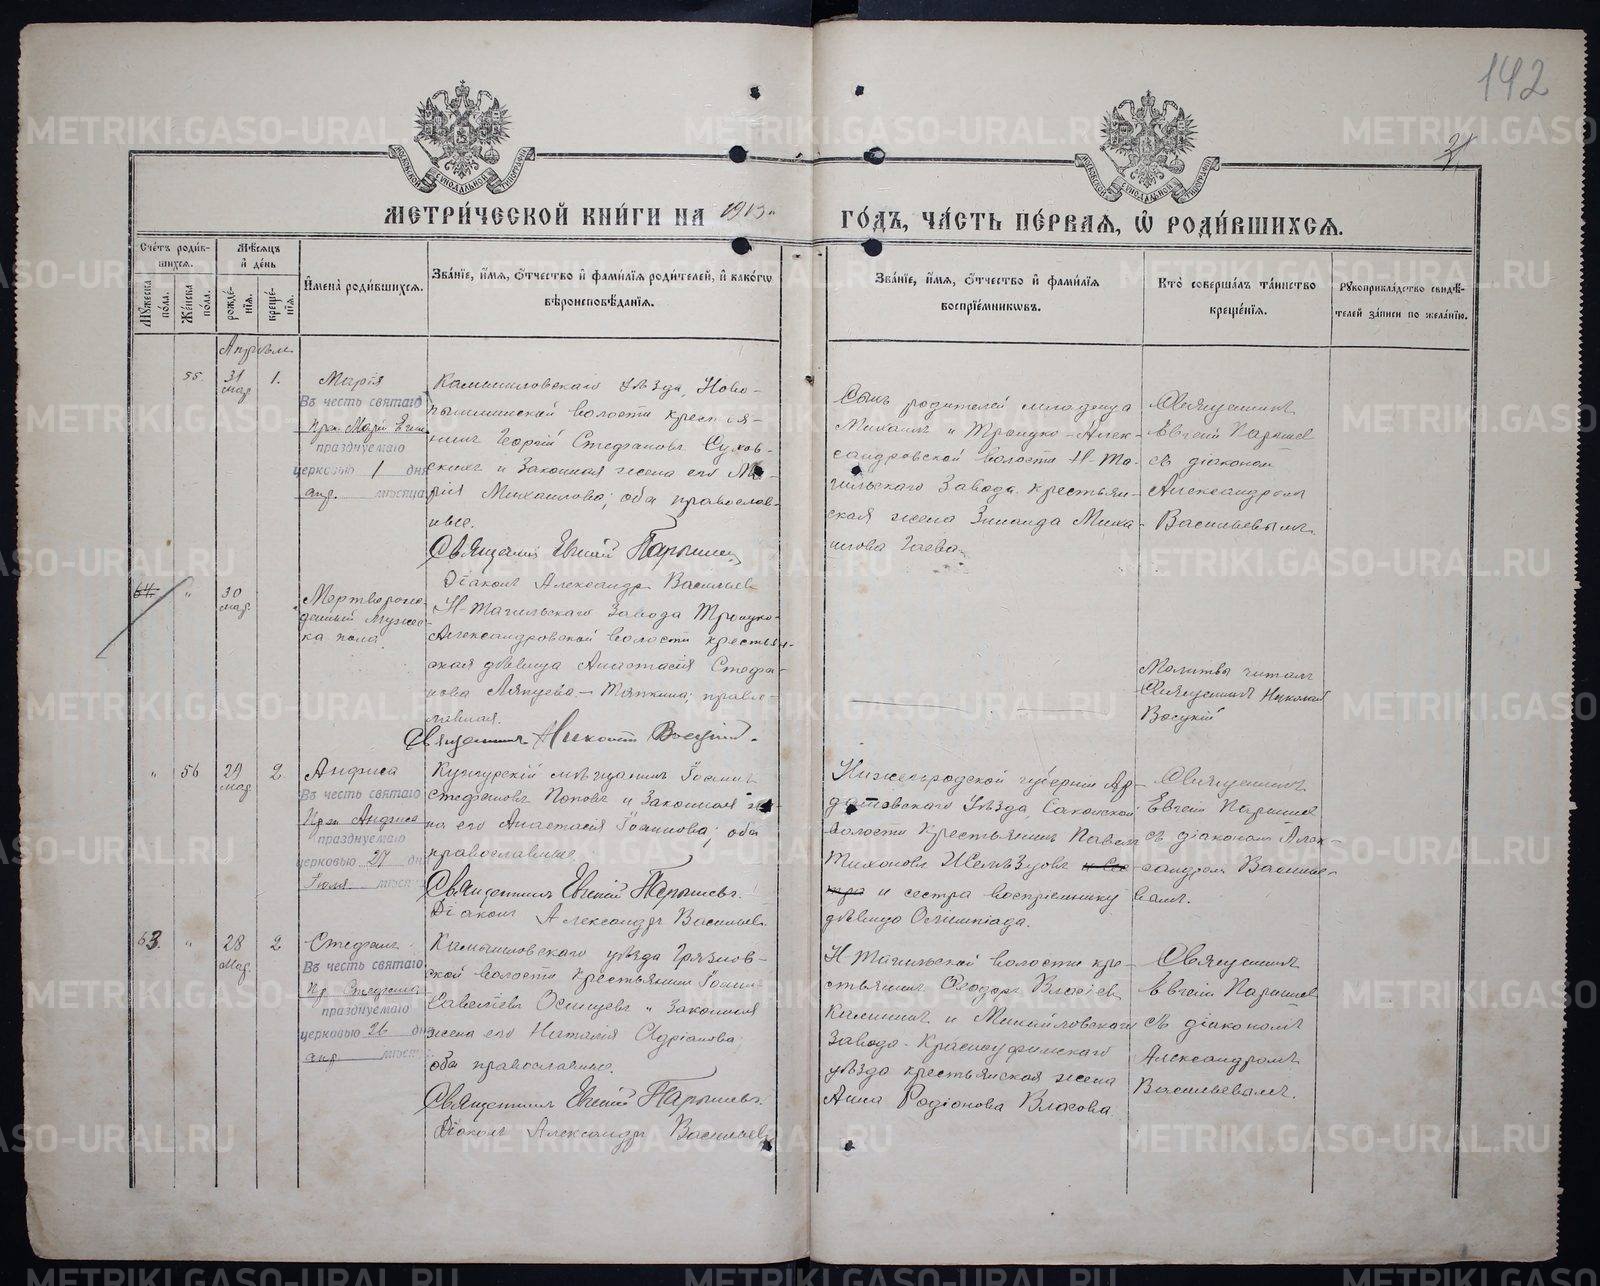 142
31
МОСКОВСКОЙ СѴНОДАЛЬНОЙ ТИПОГРАФІИ
МОСКОВСКОЙ СѴНОДАЛЬНОЙ ТИПОГРАФІИ
МЕТРИ́ЧЕСКОЙ КНИ́ГИ НА 1913 ГО́ДЪ, ЧА́СТЬ ПЕ́РВАЯ, Ѡ҆ РОДИ́ВШИХСЯ.
Сче́тъ роди́в-
шихся.
Му́жеска по́ла.
Же́нска по́ла.
Мѣ́сяцъ
и де́нь
рожде́-
нія.
креще́-
нія.
Имена̀ роди́вшихся.
Зва́ніе, и́мя, о́тчество и фами́лія роди́телей, и како́гѡ
вѣроисповѣ́данія.
Зва́ніе, и́мя, о́тчество и фами́лія
воспріе́мникѡвъ.
Кто̀ соверша́лъ та́инство
креще́нія.
Рꙋкоприкла́дство свидѣ́-
телей за́писи по жела́нію.
Апрѣль
55. 31 мар. 1.
Марія
Въ честь святаго
Прп. Маріи Егип.
празднуемаго
церковью 1 дня
апр. мѣсяца
Камышловскаго уѣзда, Ново-
пышминской волости крестья-
нинъ Георгій Стефановъ Сухов-
скихъ и законная жена его Ма-
рія Михаилова; оба православ-
ные.
Священникъ Евгеній Парышев
Діаконъ Александръ Васильевъ
Сынъ родителей младенца
Михаилъ и Троицко-Алек-
сандровской волости Н-Та-
гильскаго завода крестьян-
ская жена Зинаида Миха-
илова Гаева.
Священникъ
Евгеній Парышев
съ діакономъ
Александромъ
Васильевымъ
64 " 30 мар.
Мертворож-
денный мужес-
ка пола
Н-Тагильскаго завода Троицко-
Александровской волости крестьян-
ская дѣвица Анастасія Стефа-
нова Ляпцева - Тяпкина; право-
славная.
Священникъ Николай
Молитва читалъ
Священникъ Николай
" 56 29 мар. 2
Анфиса
Въ честь святаго
Прп. Анфиса
празднуемаго
церковью 27 дня
Іюля мѣсяца
Кунгурскій мѣщанинъ Іоаннъ
Стефановъ Поповъ и законная же-
на его Анастасія Іоаннова; оба
православные
Священникъ Евгеній Парышевъ.
Діаконъ Александръ Васильевъ
Нижегородской губерніи Ар-
датовскаго уѣзда, Саконской
волости крестьянинъ Павелъ
Тихоновъ Желѣзцовъ
и сестра воспріемнику
дѣвица Олимпіада.
Священникъ
Евгеній Парышев
съ діакономъ Алек-
сандромъ Василье-
вымъ.
63. " 28 мар. 2
Стефанъ
Въ честь святаго
Пр. Стефана
празднуемаго
церковью 26 дня
апр. мѣсяца
Камышловскаго уѣзда Грязнов-
ской волости крестьянинъ Іоаннъ
Савельевъ Осинцевъ и законная
жена его Наталія Адріанова;
оба православные.
Священникъ Евгеній Парышевъ.
Діаконъ Александръ Васильевъ
Н Тагильской волости кре-
стьянинъ Ѳеодоръ Власіев
Калининъ и Михайловскаго
завода - Красноуфимскаго
уѣзда крестьянская жена
Анна Родіонова Власова
Священникъ
Евгеній Парышев
съ діакономъ
Александромъ
Васильевымъ.
METRIKI.GASO-URAL.RU